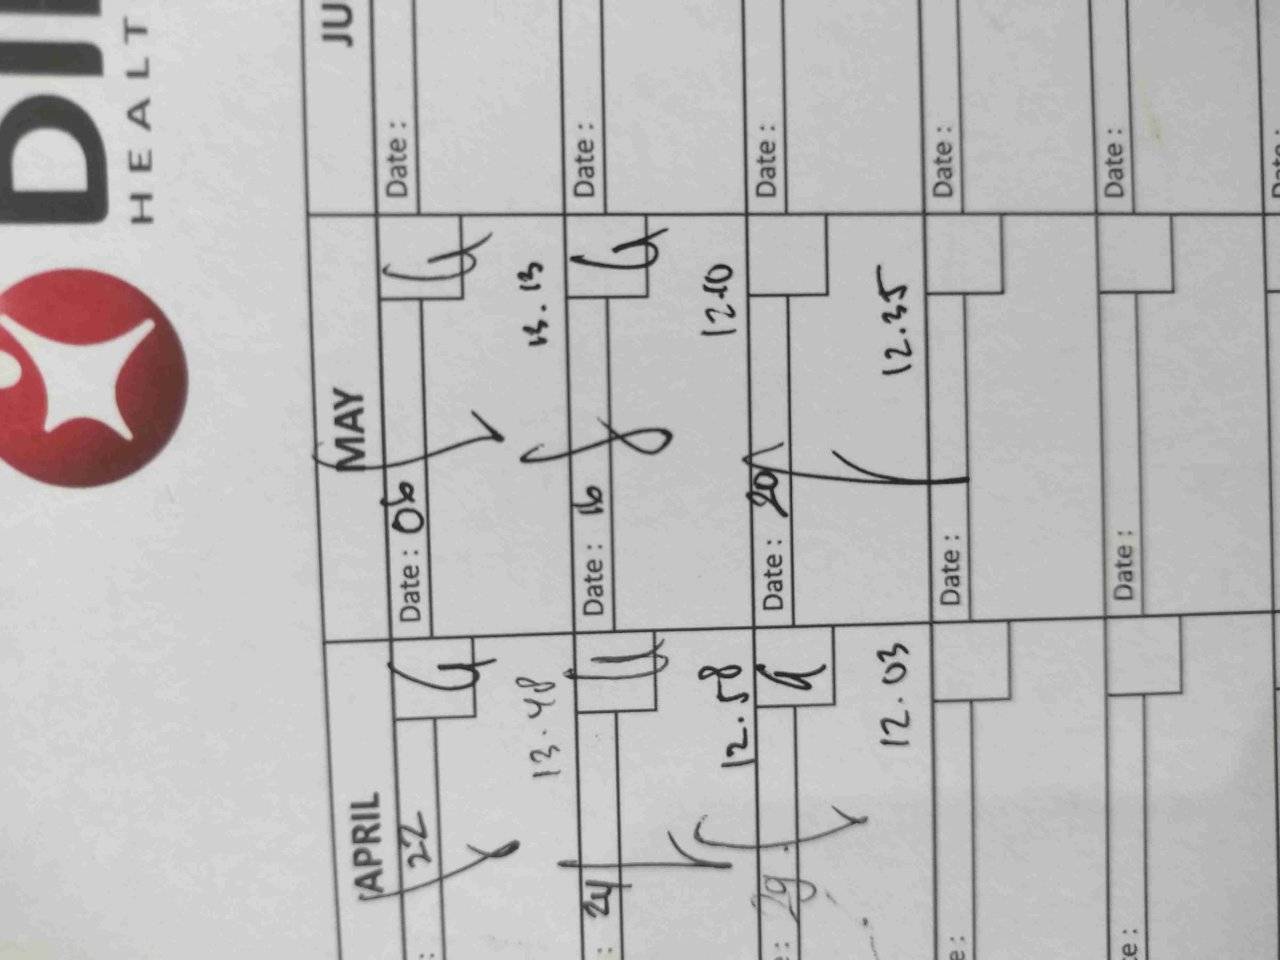 HEALT
APRIL
MAY
JU
22
Date : 06
Date :
13.48
13.13
24
Date : 16
Date :
12.58
1210
29
Date : 20
Date :
12.03
12.35
Date :
Date :
Date :
Date :